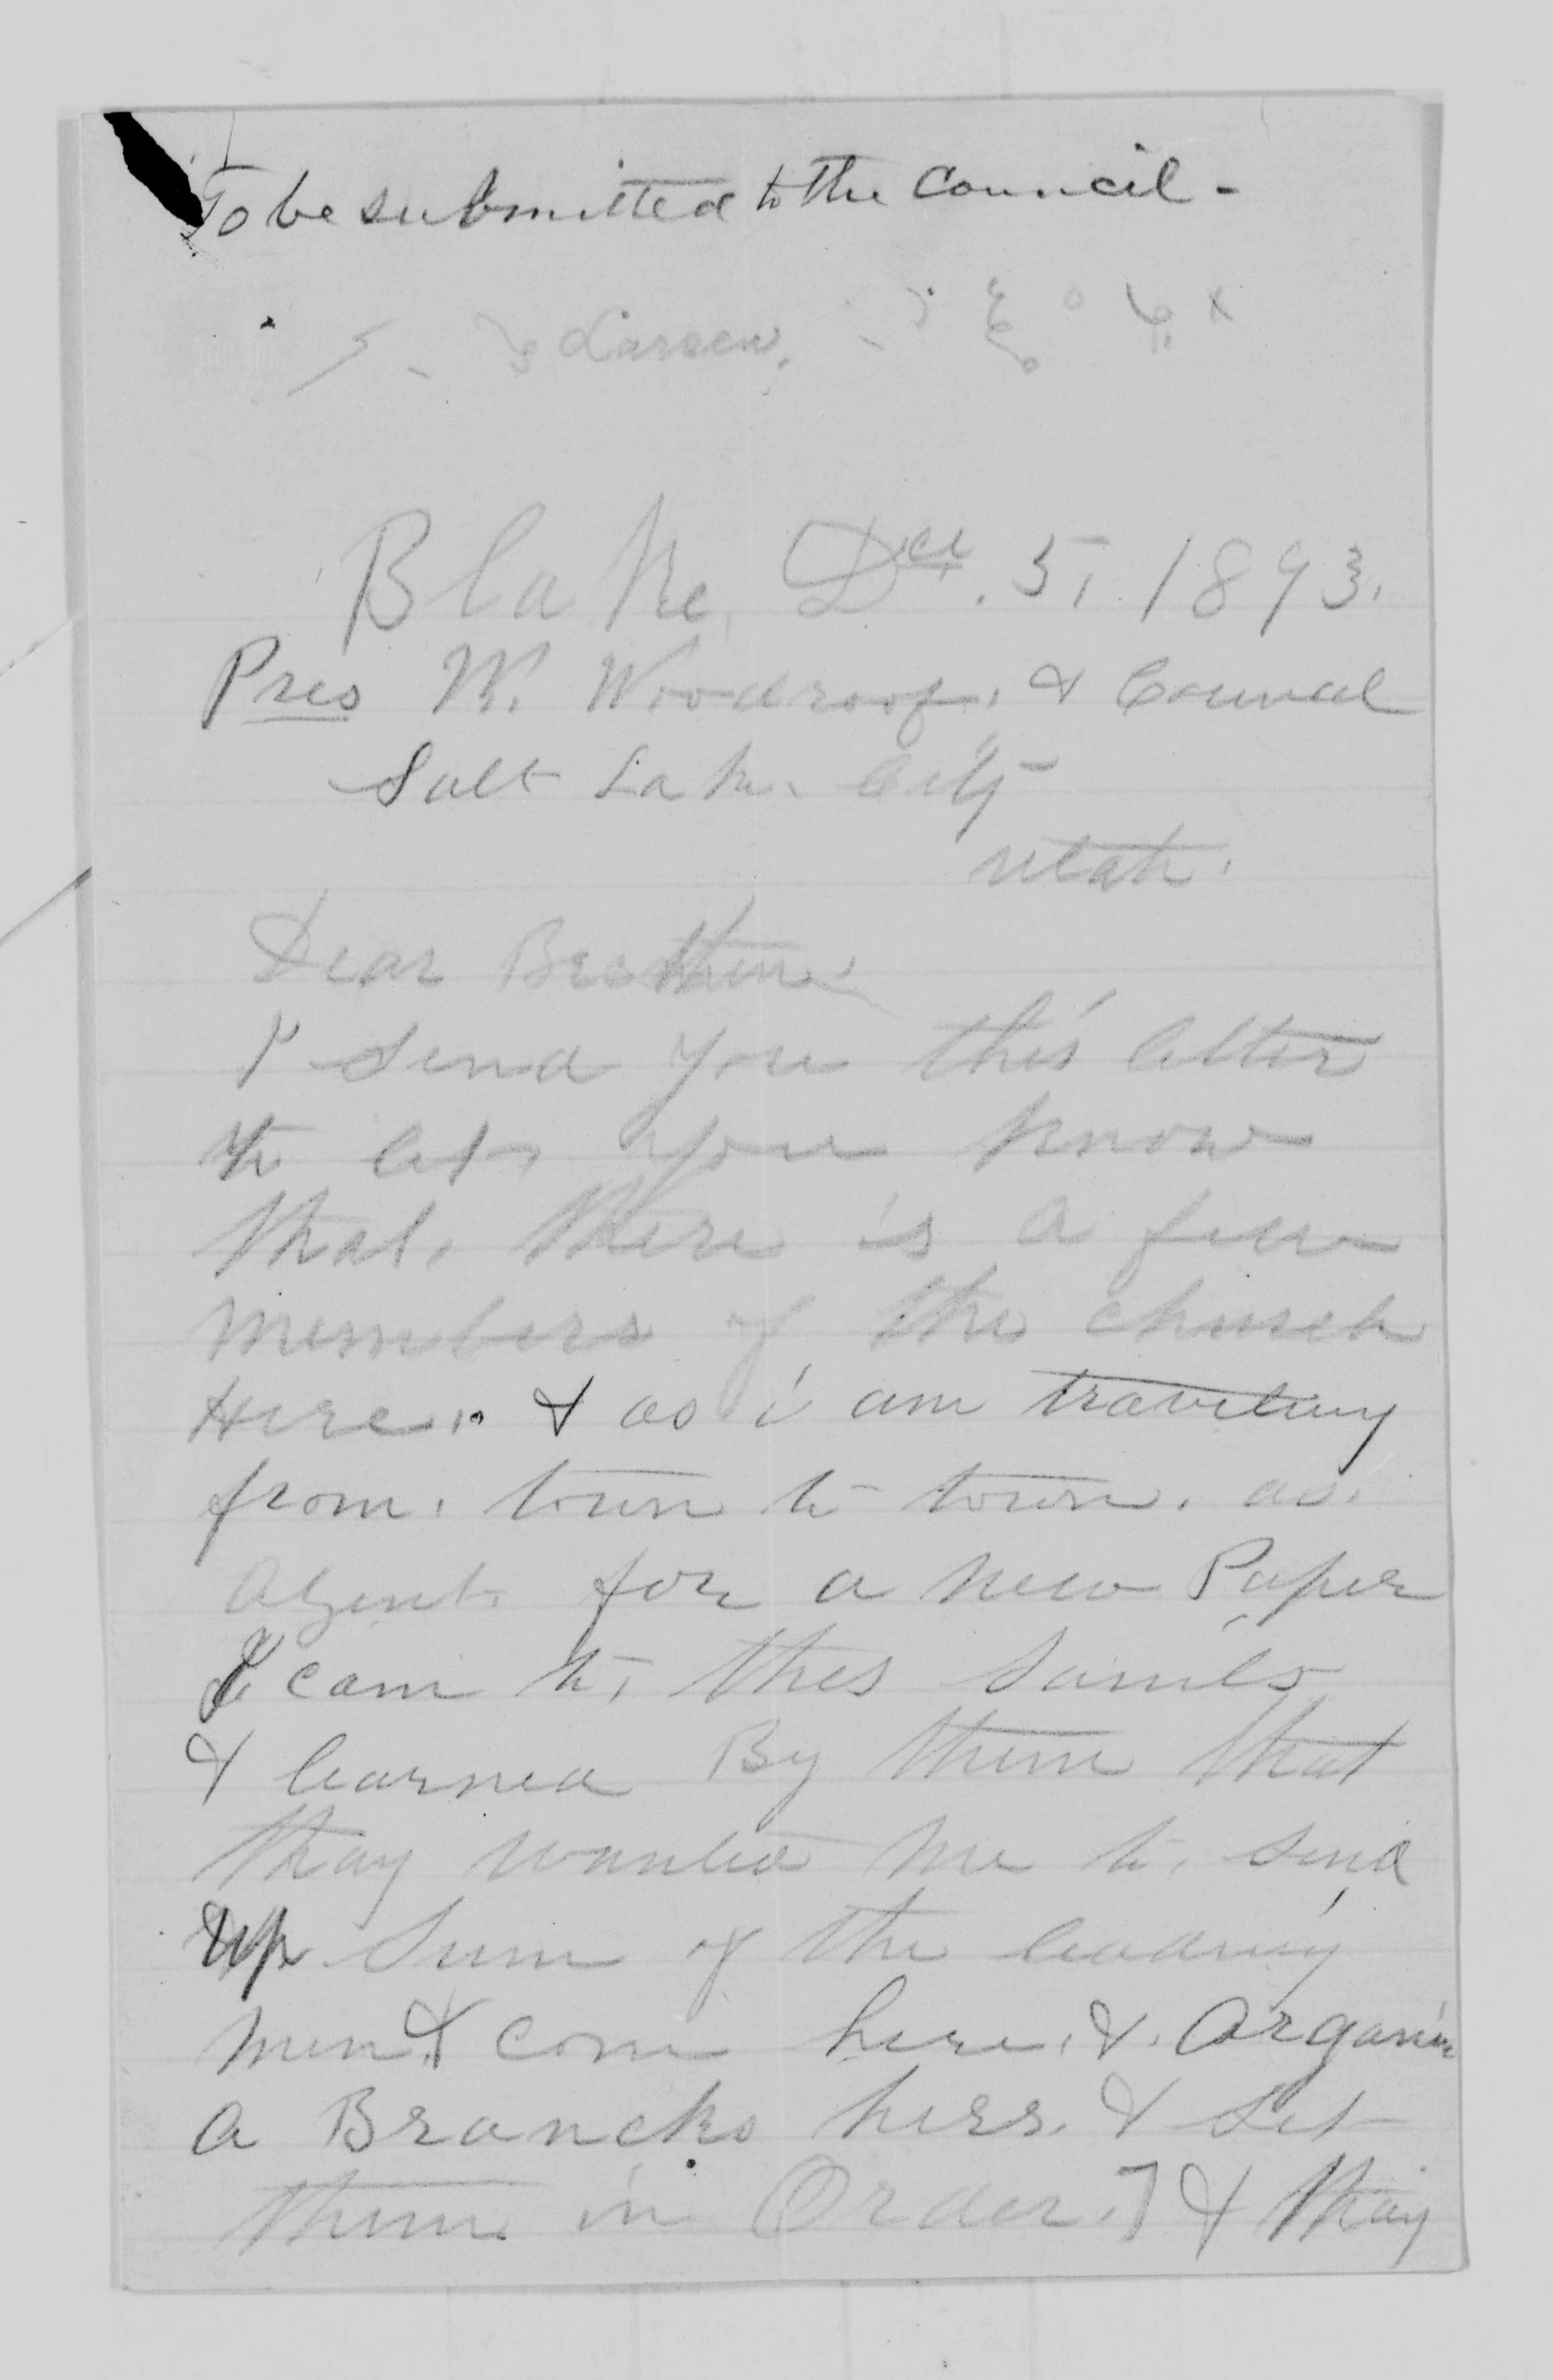 To be submitted to the Council -
Larsen.
Blake, Dce. 5, 1893.
Pres W. Woodroof. & Council
Salt Lake City
utah.
Dear Breathern
I send you this letter
to let, you know
that, there is a few
members of the church
Here. & as i am traveling
from. town to town. as.
agent for a new Paper
I cam to, thes saints
& learned By them that
thay wanted me to, send
up sum of the leading
men & come here. & Organize
a Branch hers. & set
them in Order.] & thay